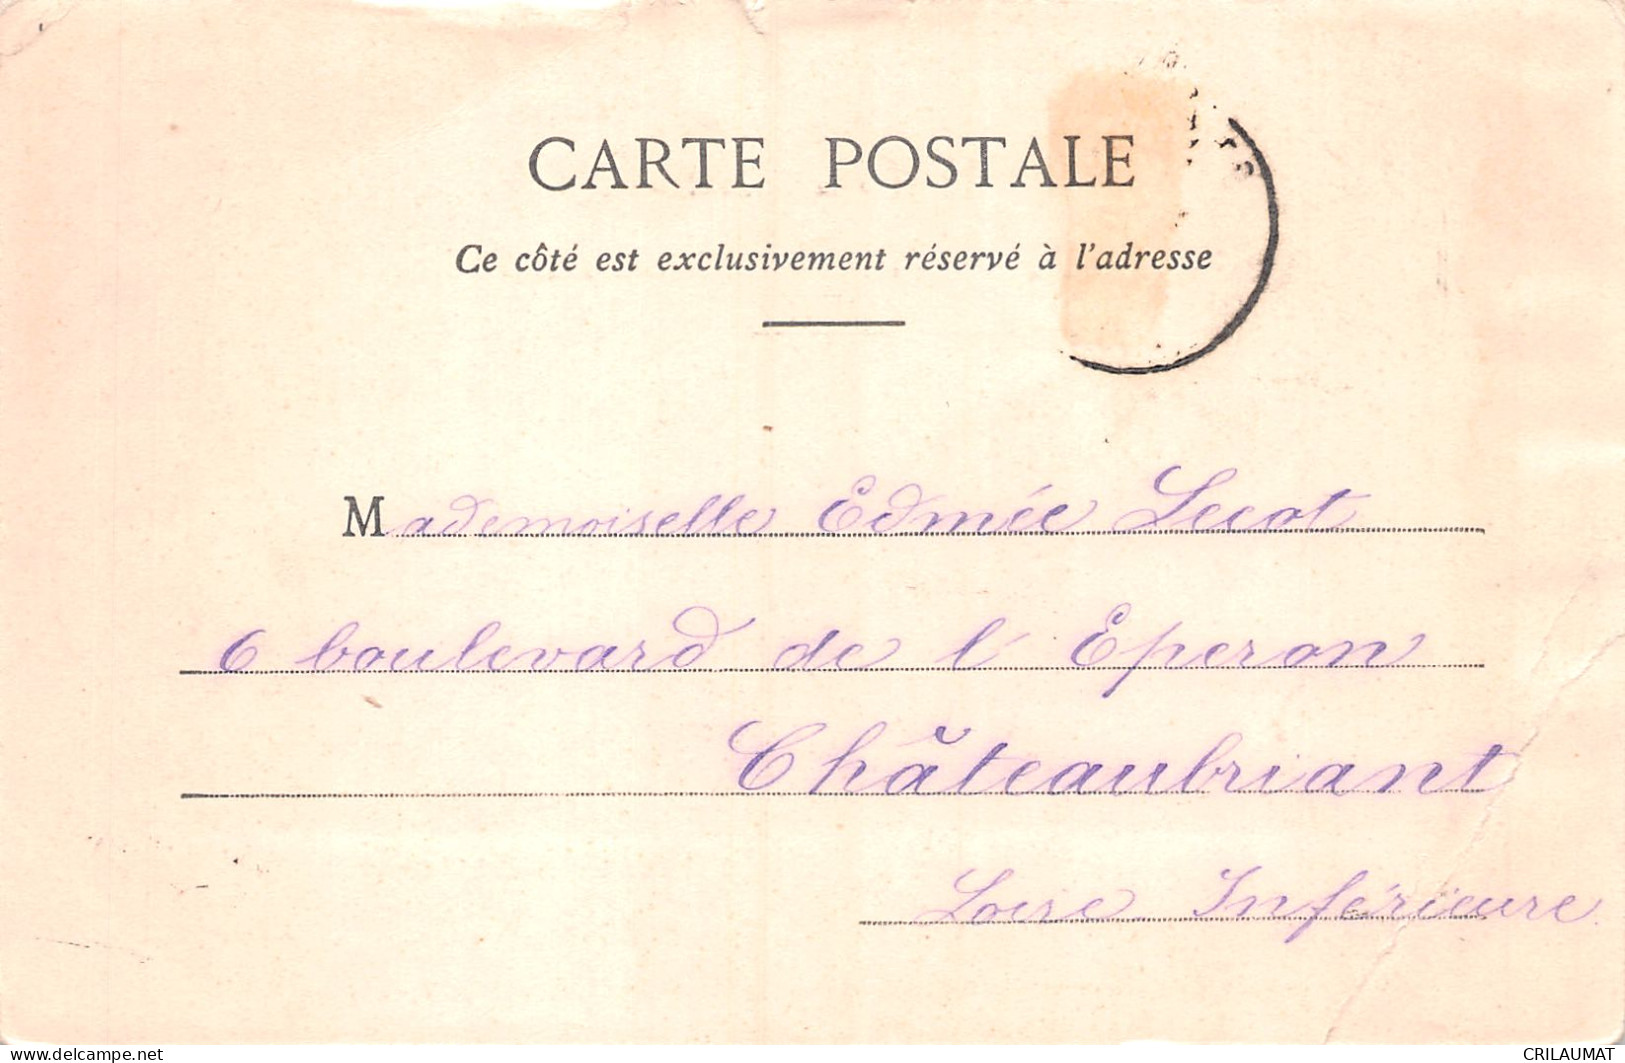 CARTE POSTALE
Ce côté est exclusivement réservé à l'adresse
Mademoiselle Edmée Lecot
6 boulevard de l'Eperon
Châteaubriant
Loire Inférieure
www.delcampe.net
CRILAUMAT